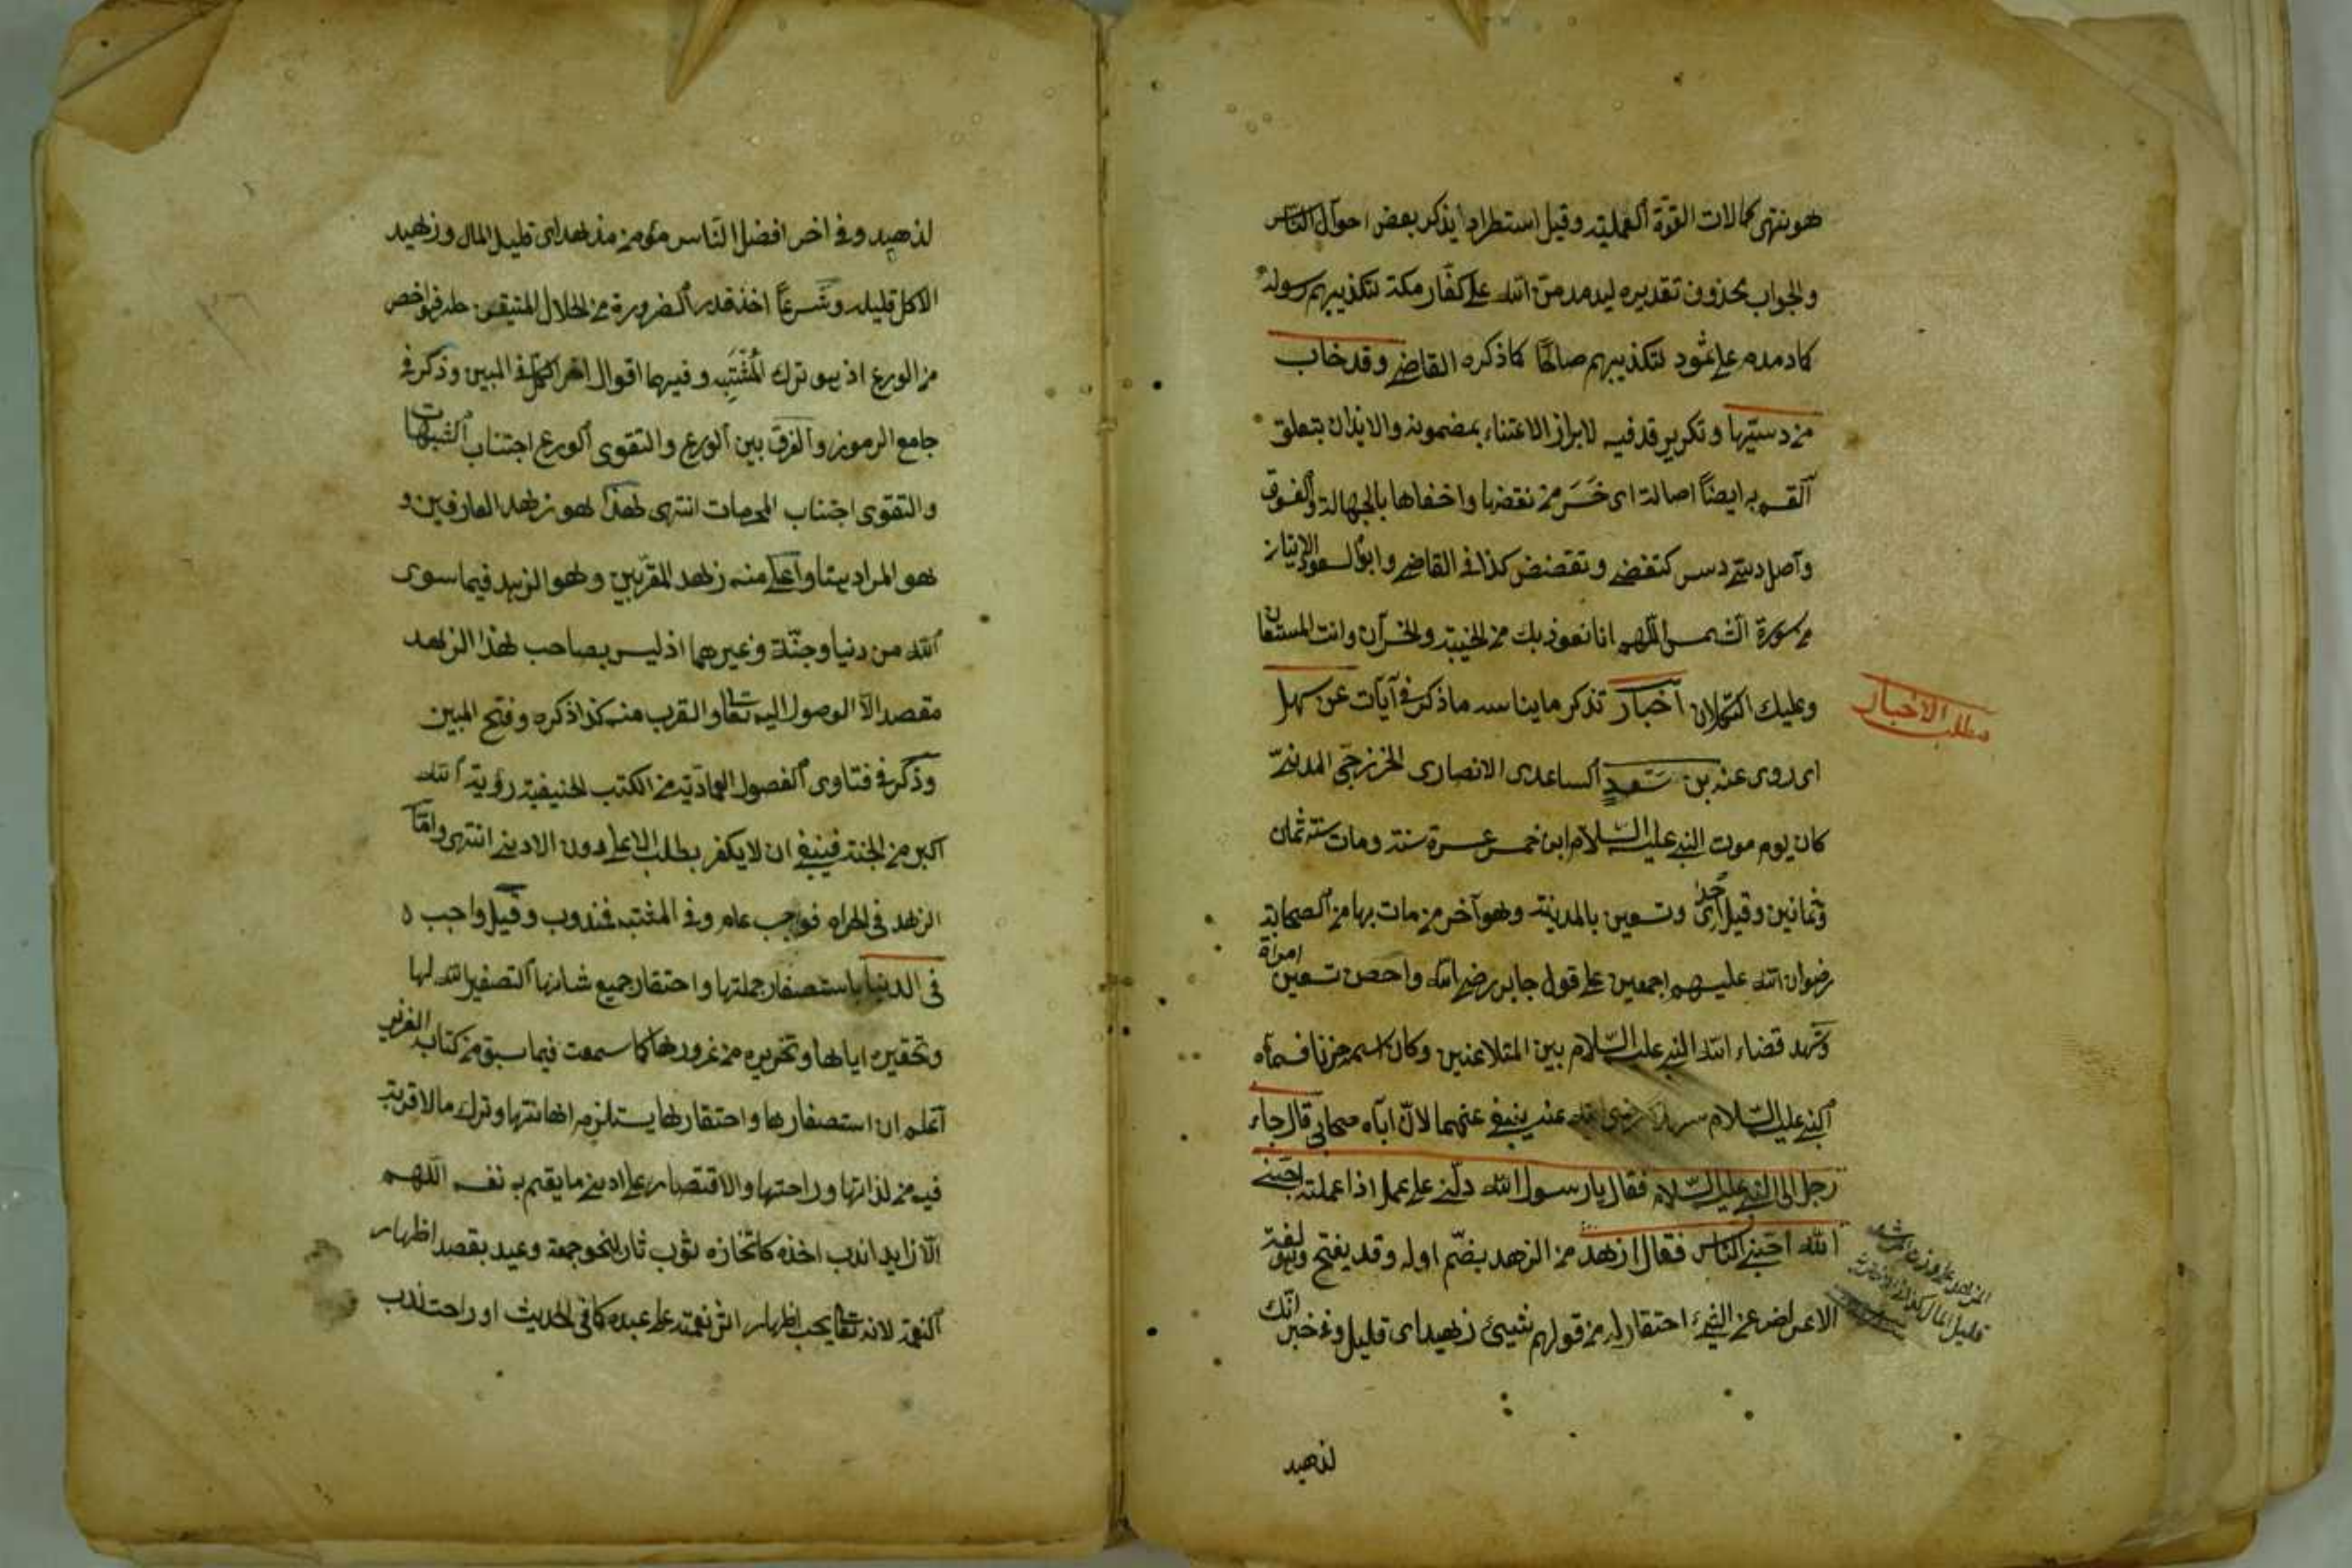 هو ننتهى كمالات القوّة العمليّة وقيل استطراد ايذكر بعض احوال النّاس
والجواب محذوف تقديره ليدمدمنّ الله على كفّار مكة لتكذيبهم رسوله
كما دمدم على ثمود لتكذيبهم صالحًا كما ذكره القاضى وقد خاب
من دسّيها وتكرير قد فيه لابراز الاعتناء بمضمونه والايذان بتعلق
القسم به ايضًا اصالة اى خَسَرَ من نقصها واخفاها بالجهالة والفسوق
وآصل دسّى دسس كتقضى وتقضض كذا فى القاضى وابو السعود
من سورة الشمس اللّهم انا نعوذ بك من الخيبة والخسران وانت المستعان
وعليك التكلان اخبار تذكر ما يناسب ما ذكر فى آيات عن سهل
مطلب الاخبار
اى روى عنه بن سَعدٍ الساعدى الانصارى الخزرجى المدنىّ
كان يوم موت النبى عليه السّلام ابن خمس عشرة سنة ومات سنة ثمان
وثمانين وقيل احدى وتسعين بالمدينة وهو آخر من مات بها من الصحابة
رضوان الله عليهم اجمعين على قول جابر رضى الله واحصن تسعين امراة
وشهد قضاء الله النبى عليه السّلام بين المتلاعنين وكان اسمه حزنا فسماه
النبى عليه السّلام سهلا رضى الله عنه ينبغى عنهما لانّ اباه صحابى قال جاء
رجل الى النبى عليه السّلام فقال يا رسول الله دلّنى على عمل اذا عملته احبّنى
الله احبّنى الناس فقال ازهد من الزهد بضمّ اوله وقد يفتح وهو لغة
الاعراض عن الشئ احتقارا له من قولهم شيئ زهيد اى قليل وفى خبر انّك
لزهيد
لزهيد وفى اخر افضل النّاس مؤمن مزهد اى قليل المال وزهيد
الاكل قليله وشَرعًا اخذ قدر الضرورة من الحلال المتيقن حله فهو اخص
من الورع اذ هو ترك المُشْتَبِه وفيهما اقوال اخر فى المبين وذكر فى
جامع الرموز والفرق بين الورع والتقوى الورع اجتناب الشبهات
والتقوى اجتناب المحرمات انتهى هذا هو زهد العارفين و
هو المراد هنا واعلى منه زهد المقرّبين وهو الزهد فيما سوى
الله من دنيا وجنّة وغيرهما اذ ليس بصاحب هذا الزهد
مقصد الّا الوصول اليه تعالى والقرب منه كذا ذكره وفتح المبين
وذكر فى فتاوى الفصول العماديّة من الكتب الحنيفية رؤية الله
اكبر من الجنة فينبغى ان لا يكفر بطلب الاعلى دون الادنى انتهى وامّا
الزهد فى الحرام فواجب عام وفى المشتبه فمندوب وقيل واجب
فى الدنيا باستصغار جملتها واحتقار جميع شانها التصغير الله لها
وتحقيره اياها وتحريره من غرورها كما سمعت فيما سبق من كتاب العزيز
اعلم ان استصغارها واحتقارها يستلزم اهانتها وترك ما لا قربة
فيه من لذاتها وراحتها والاقتصار على ادنى ما يقيم به نفسه اللّهم
الّا زايد اندب اخذه كاتخاذه لثوب ثان لنحو جمعة وعيد بقصد اظهار
النعمة لانه تعالى يحب اظهار اثر نعمته على عبده كما فى الحديث او راحت لدب